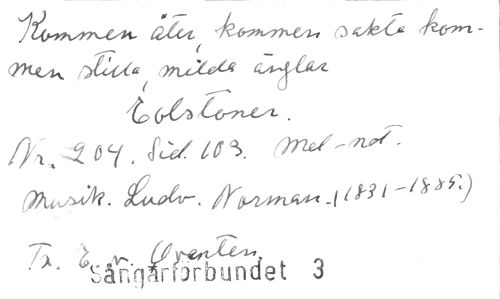 Kommen åter, kommen sakta kom-
men stilla, milda änglar
Eolstoner.
Nr. 204. Sid. 103. Mel-not.
Musik. Ludv. Norman. (1831-1885.)
Tx. E. v. Qvanten.
Sångarförbundet 3